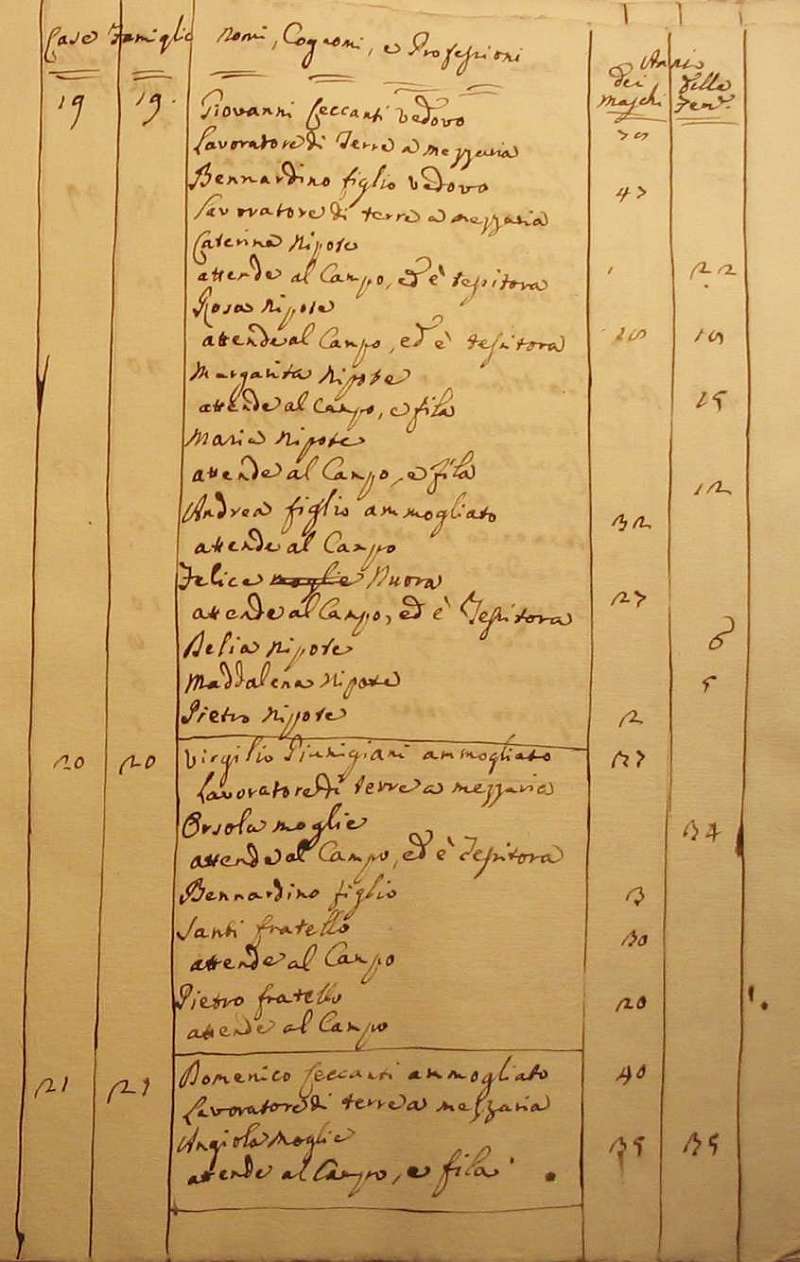 Case Famiglie Nomi, Cognomi, e Professioni Anni
dei Maschi delle Fem.e
19 19. Giovanni Ceccanti Vedovo
Lavoratore di Terre a mezzaria 70
Bennardino figlio Vedovo
Lavoratore di terre a mezzaria 47
Caterina Nipote
attende al Campo, ed è tessitora 22
Rosa Nipote
attende al Campo, ed è tessitora 19
Margarita Nipote
attende al Campo, e fila 15
Maria Nipote
attende al Campo, e fila 12
Andrea figlio ammogliato 32
attende al Campo
Felice moglie Nuora
attende al Campo, ed è Tessitora 27
Nipote 8
Maddalena Nipote 5
Pietro Nipote 2
20 20 Virgilio Pianigiani ammogliato 37
Lavoratore di terre a mezzaria
Orsola moglie 34
attende al Campo, ed è Tessitora
Bennardino figlio 3
Santi fratello 30
attende al Campo
Pietro fratello 20
attende al Campo
21 21 Domenico Ceccanti ammogliato 40
Lavoratore di terre a mezzaria
Angiola Moglie 35 35
attende al Campo, e fila